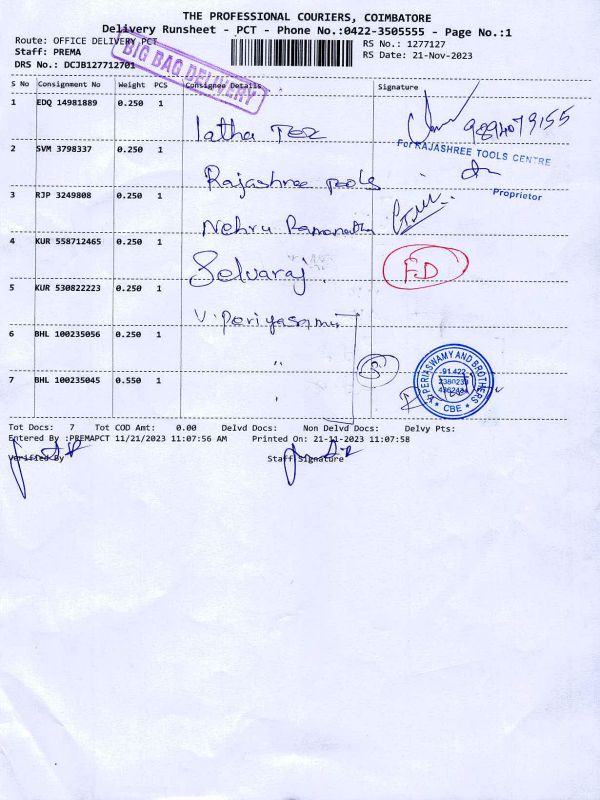 THE PROFESSIONAL COURIERS, COIMBATORE
Delivery Runsheet - PCT - Phone No.:0422-3505555 - Page No.:1
Route: OFFICE DELIVERY PCT
RS No.: 1277127
Staff: PREMA
RS Date: 21-Nov-2023
DRS No.: DCJB127712701
BIG BAG DELIVERY
S No Consignment No Weight PCS Consignee Details Signature
1 EDQ 14981889 0.250 1 latha
9894079155
2 SVM 3798337 0.250 1 Rajashree
For RAJASHREE TOOLS CENTRE
Proprietor
3 RJP 3249808 0.250 1 Nehru
4 KUR 558712465 0.250 1 Selvaraj FD
5 KUR 530822223 0.250 1 V. Periyasamy
6 BHL 100235056 0.250 1 "
7 BHL 100235045 0.550 1
PERIASWAMY AND BROTHERS
91.422
2380233
CBE
Tot Docs: 7 Tot COD Amt: 0.00 Delvd Docs: Non Delvd Docs: Delvy Pts:
Entered By :PREMAPCT 11/21/2023 11:07:56 AM Printed On: 21-11-2023 11:07:58
Verified By Staff Signature